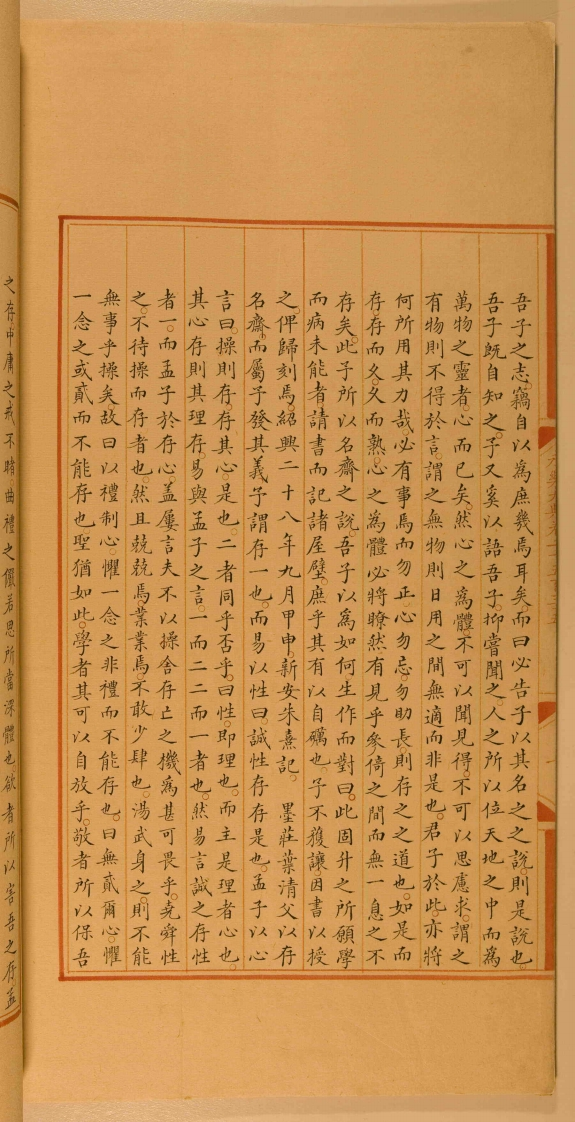 吾子之志竊自以為庶幾焉耳矣而曰必告子以其名之之說則是說也
吾子既自知之予又奚以語吾子抑嘗聞之人之所以位天地之中而為
萬物之靈者心而已矣然心之為體不可以聞見得不可以思慮求謂之
有物則不得於言謂之無物則日用之間無適而非是也君子於此亦將
何所用其力哉必有事焉而勿正心勿忘勿助長則存之之道也如是而
存存而久久而熟心之為體必將瞭然有見乎參倚之間而無一息之不
存矣此予所以名齋之說吾子以為如何生作而對曰此固升之所願學
而病未能者請書而記諸屋壁庶乎其有以自礪也予不獲讓因書以授
之俾歸刻焉紹興二十八年九月甲申新安朱熹記 墨莊葉清父以存
名齋而屬予發其義予謂存一也而易以性曰誠性存存是也孟子以心
言曰操則存存其心是也二者同乎否乎曰性即理也而主是理者心也
其心存則其理存易與孟子之言一而二二而一者也然易言誠之存性
者一而孟子於存心蓋屢言夫不以操舍存亡之機為甚可畏乎堯舜性
之不待操而存者也然且兢兢焉業業焉不敢少肆也湯武身之則不能
無事乎操矣故曰以禮制心懼一念之非禮而不能存也曰無貳爾心懼
一念之或貳而不能存也聖猶如此學者其可以自放乎敬者所以保吾
之存中庸之戒不睹曲禮之儼若思所當深體也欲者所以害吾之存孟